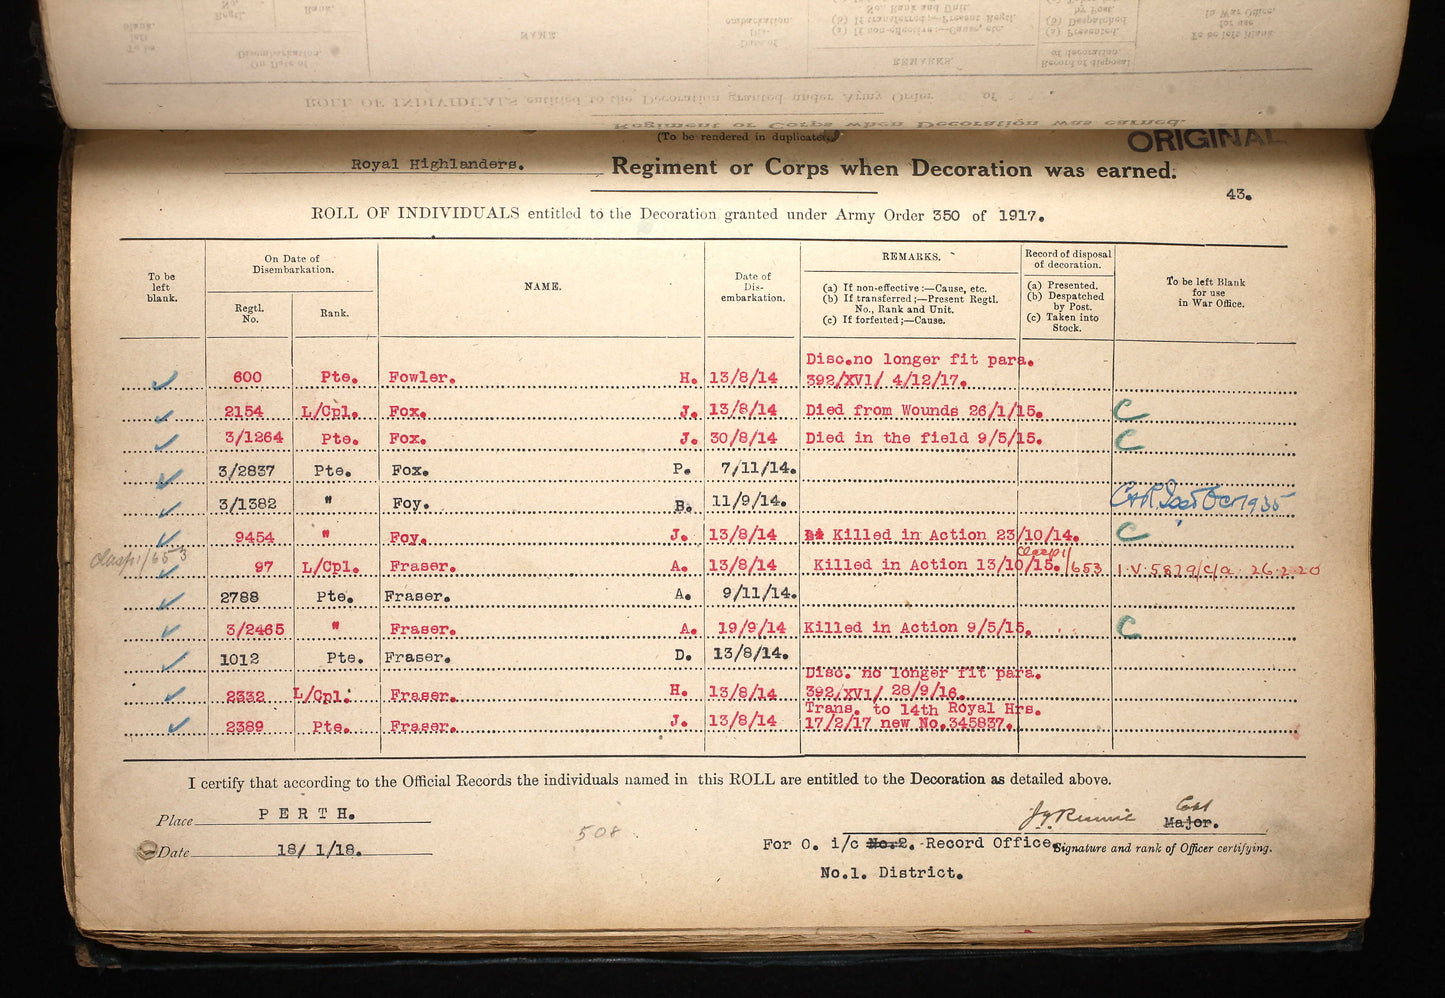 (To be rendered in duplicate.)
ORIGINAL
Royal Highlanders. Regiment or Corps when Decoration was earned.
43.
ROLL OF INDIVIDUALS entitled to the Decoration granted under Army Order 350 of 1917.
To be left blank. On Date of Disembarkation. Regtl. No. Rank. NAME. Date of Dis-embarkation. REMARKS. (a) If non-effective:—Cause, etc. (b) If transferred;—Present Regtl. No., Rank and Unit. (c) If forfeited;—Cause. Record of disposal of decoration. (a) Presented. (b) Despatched by Post. (c) Taken into Stock. To be left Blank for use in War Office.
Disc.no longer fit para.
600 Pte. Fowler. H. 13/8/14 392/XVI/ 4/12/17.
2154 L/Cpl. Fox. J. 13/8/14 Died from Wounds 26/1/15. C
3/1264 Pte. Fox. J. 30/8/14 Died in the field 9/5/15. C
3/2837 Pte. Fox. P. 7/11/14.
3/1382 " Foy. B. 11/9/14. 1935
9454 " Foy. J. 13/8/14 Killed in Action 23/10/14. C
Clasp 1/653
Clasp 1/
97 L/Cpl. Fraser. A. 13/8/14 Killed in Action 13/10/15. /653 1.V.5829/C/a. 26.2.20
2788 Pte. Fraser. A. 9/11/14.
3/2465 " Fraser. A. 19/9/14 Killed in Action 9/5/15. C
1012 Pte. Fraser. D. 13/8/14.
Disc. no longer fit para.
2332 L/Cpl. Fraser. H. 13/8/14 392/XVI/ 28/9/16.
Trans. to 14th Royal Hrs.
2389 Pte. Fraser. J. 13/8/14 17/2/17 new No.345837.
I certify that according to the Official Records the individuals named in this ROLL are entitled to the Decoration as detailed above.
Place PERTH.
Capt
Major.
508
Date 18/ 1/18.
For O. i/c No.2. Record Office. Signature and rank of Officer certifying.
No.1. District.